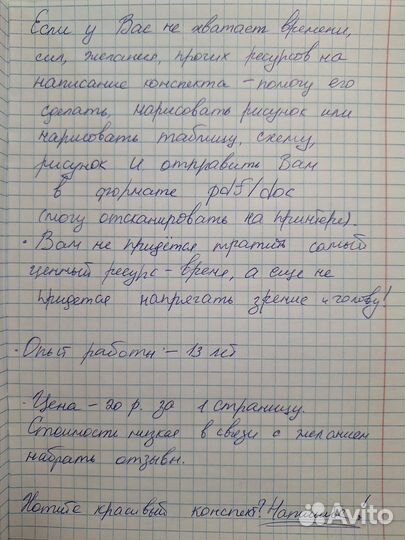 Если у Вас не хватает времени,
сил, желания, прочих ресурсов на
написание конспекта - помогу его
сделать, нарисовать рисунок или
нарисовать таблицу, схему,
рисунок и отправить Вам
в формате pdf/doc
(могу отсканировать на принтере).
• Вам не придётся тратить самый
ценный ресурс - время, а еще не
придется напрягать зрение и голову!
• Опыт работы - 13 лет
• Цена - 20 р. за 1 страницу.
Стоимость низкая в связи с желанием
набрать отзывы.
Хотите красивый конспект? Напишите!
Avito